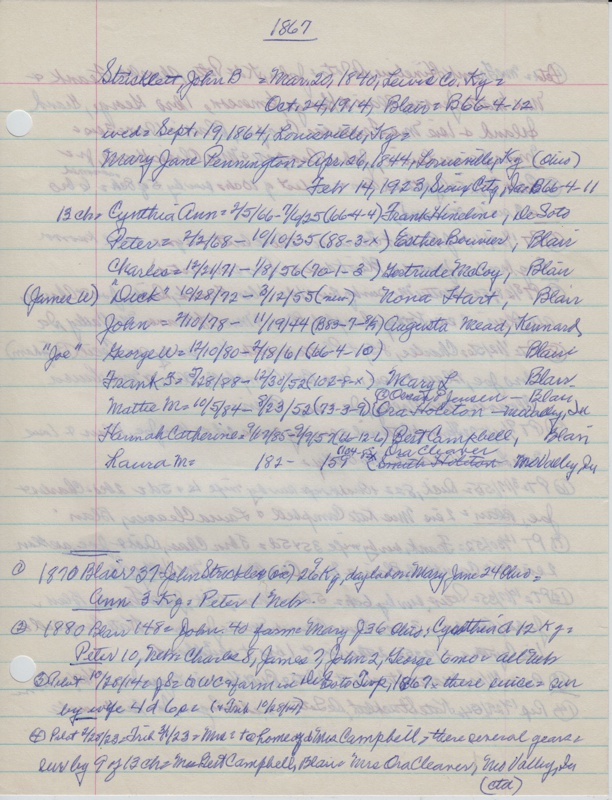 1867
Stricklett, John B = Mar. 20, 1840, Lewis Co. Ky =
Oct. 24, 1914, Blair = B66-4-12
wed = Sept. 19, 1864, Louisville, Ky =
Mary Jane Pennington = Apr. 26, 1844, Louisville, Ky (Ohio)
Feb 14, 1923, Sioux City, Ia = B66-4-11
13 ch = Cynthia Ann = 2/5/66 - 7/6/25 (66-4-4) Frank Hineline, DeSoto
Peter = 2/2/68 - 10/10/35 (88-3-x) Esther Bounier, Blair
Charles = 12/21/71 - 1/8/56 (70-1-3) Gertrude McCoy, Blair
(James W) "Dick" 10/28/72 - 3/12/55 (new) Nona Hart, Blair
John = 2/10/78 - 11/19/44 (B53-7-8½) Augusta Mead, Kennard
"Joe" George W = 12/10/80 - 2/18/61 (66-4-10) Blair
Frank J = 5/28/88 - 12/30/52 (102-8-x) Mary L Blair
Mattie M = 10/5/84 - 8/23/52 (73-3-9) Oscar P Jensen - Blair
Ora Holeton - Mo Valley, Ia
Hannah Catherine = 9/17/85 - 9/9/57 (66-12-6) Bert Campbell, Blair
Laura M = 182 - 159 Ora Cleaver
Smith Holeton - Mo Valley, Ia
① 1870 Blair = 37 = John Stricklett (ox) 26 Ky, day labor Mary Jane 24 Ohio =
Ann 3 Ky = Peter 1 Nebr.
② 1880 Blair 148 = John 40 farm = Mary J 36 Ohio; Cynthia A 12 Ky =
Peter 10, Nebr Charles 8, James 7, John 2, George 6 mo = all Nebr
③ Pilot 10/28/14 = to WC & farm in DeSoto Twp, 1867 = there since = sur
by wife 4 d 6 s = (& Trib 10/28/14)
④ Pilot 2/20/23 = Trib 2/1/23 = Mrs = to home of Mrs Campbell = there several years =
sur by 9 of 13 ch = Mrs Bert Campbell, Blair = Mrs Ora Cleaver, Mo Valley, Ia
(ctd)